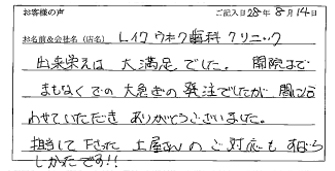 お客様の声 ご記入日28年8月14日
お名前&会社名(店名) レイクウホク歯科クリニック
出来栄えは 大満足でした。 開院まで
まもなくでの 大急ぎの 発注でしたが 間に合
わせていただき ありがとうございました。
担当して下さった 土屋さんの ご対応も すばら
しかったです!!